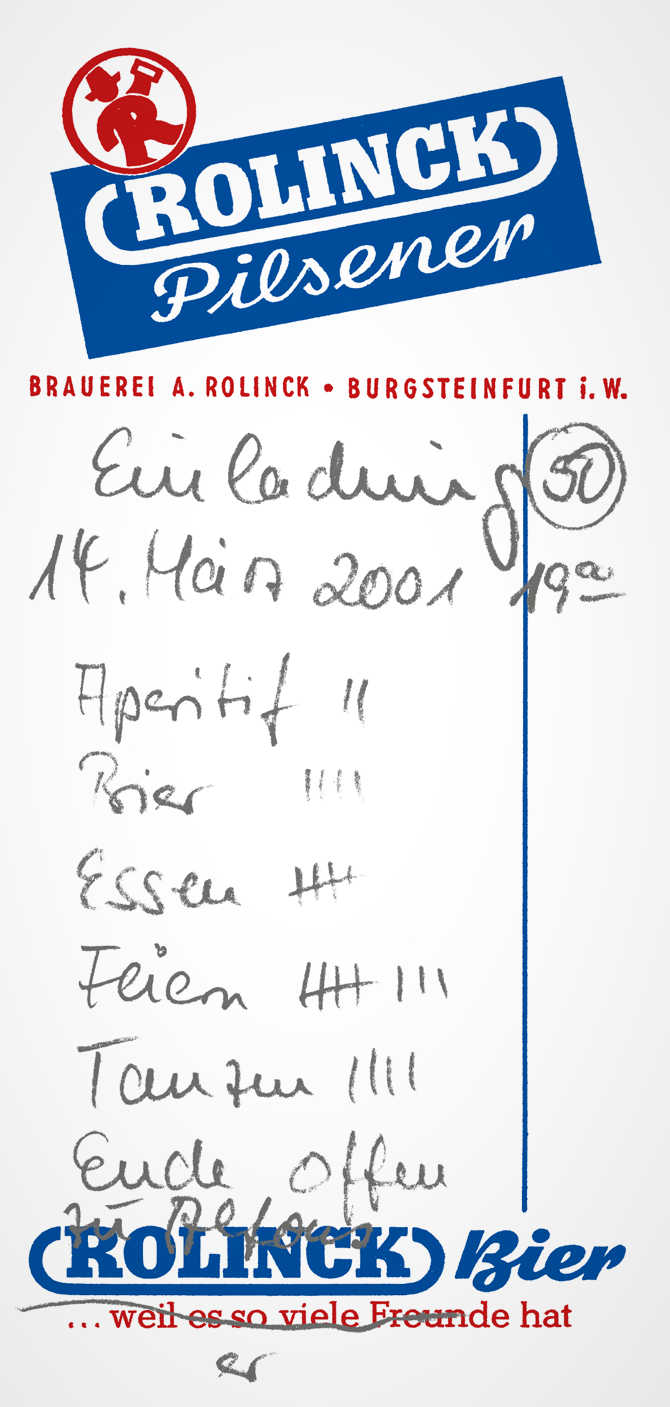 ROLINCK
Pilsener
BRAUEREI A. ROLINCK • BURGSTEINFURT i. W.
Einladung 50
14. März 2001 19a
Aperitif II
Bier IIII
Essen IIII
Feiern IIII III
Tanzen IIII
Ende offen
zu Alfons
ROLINCK Bier
... weil es so viele Freunde hat
er